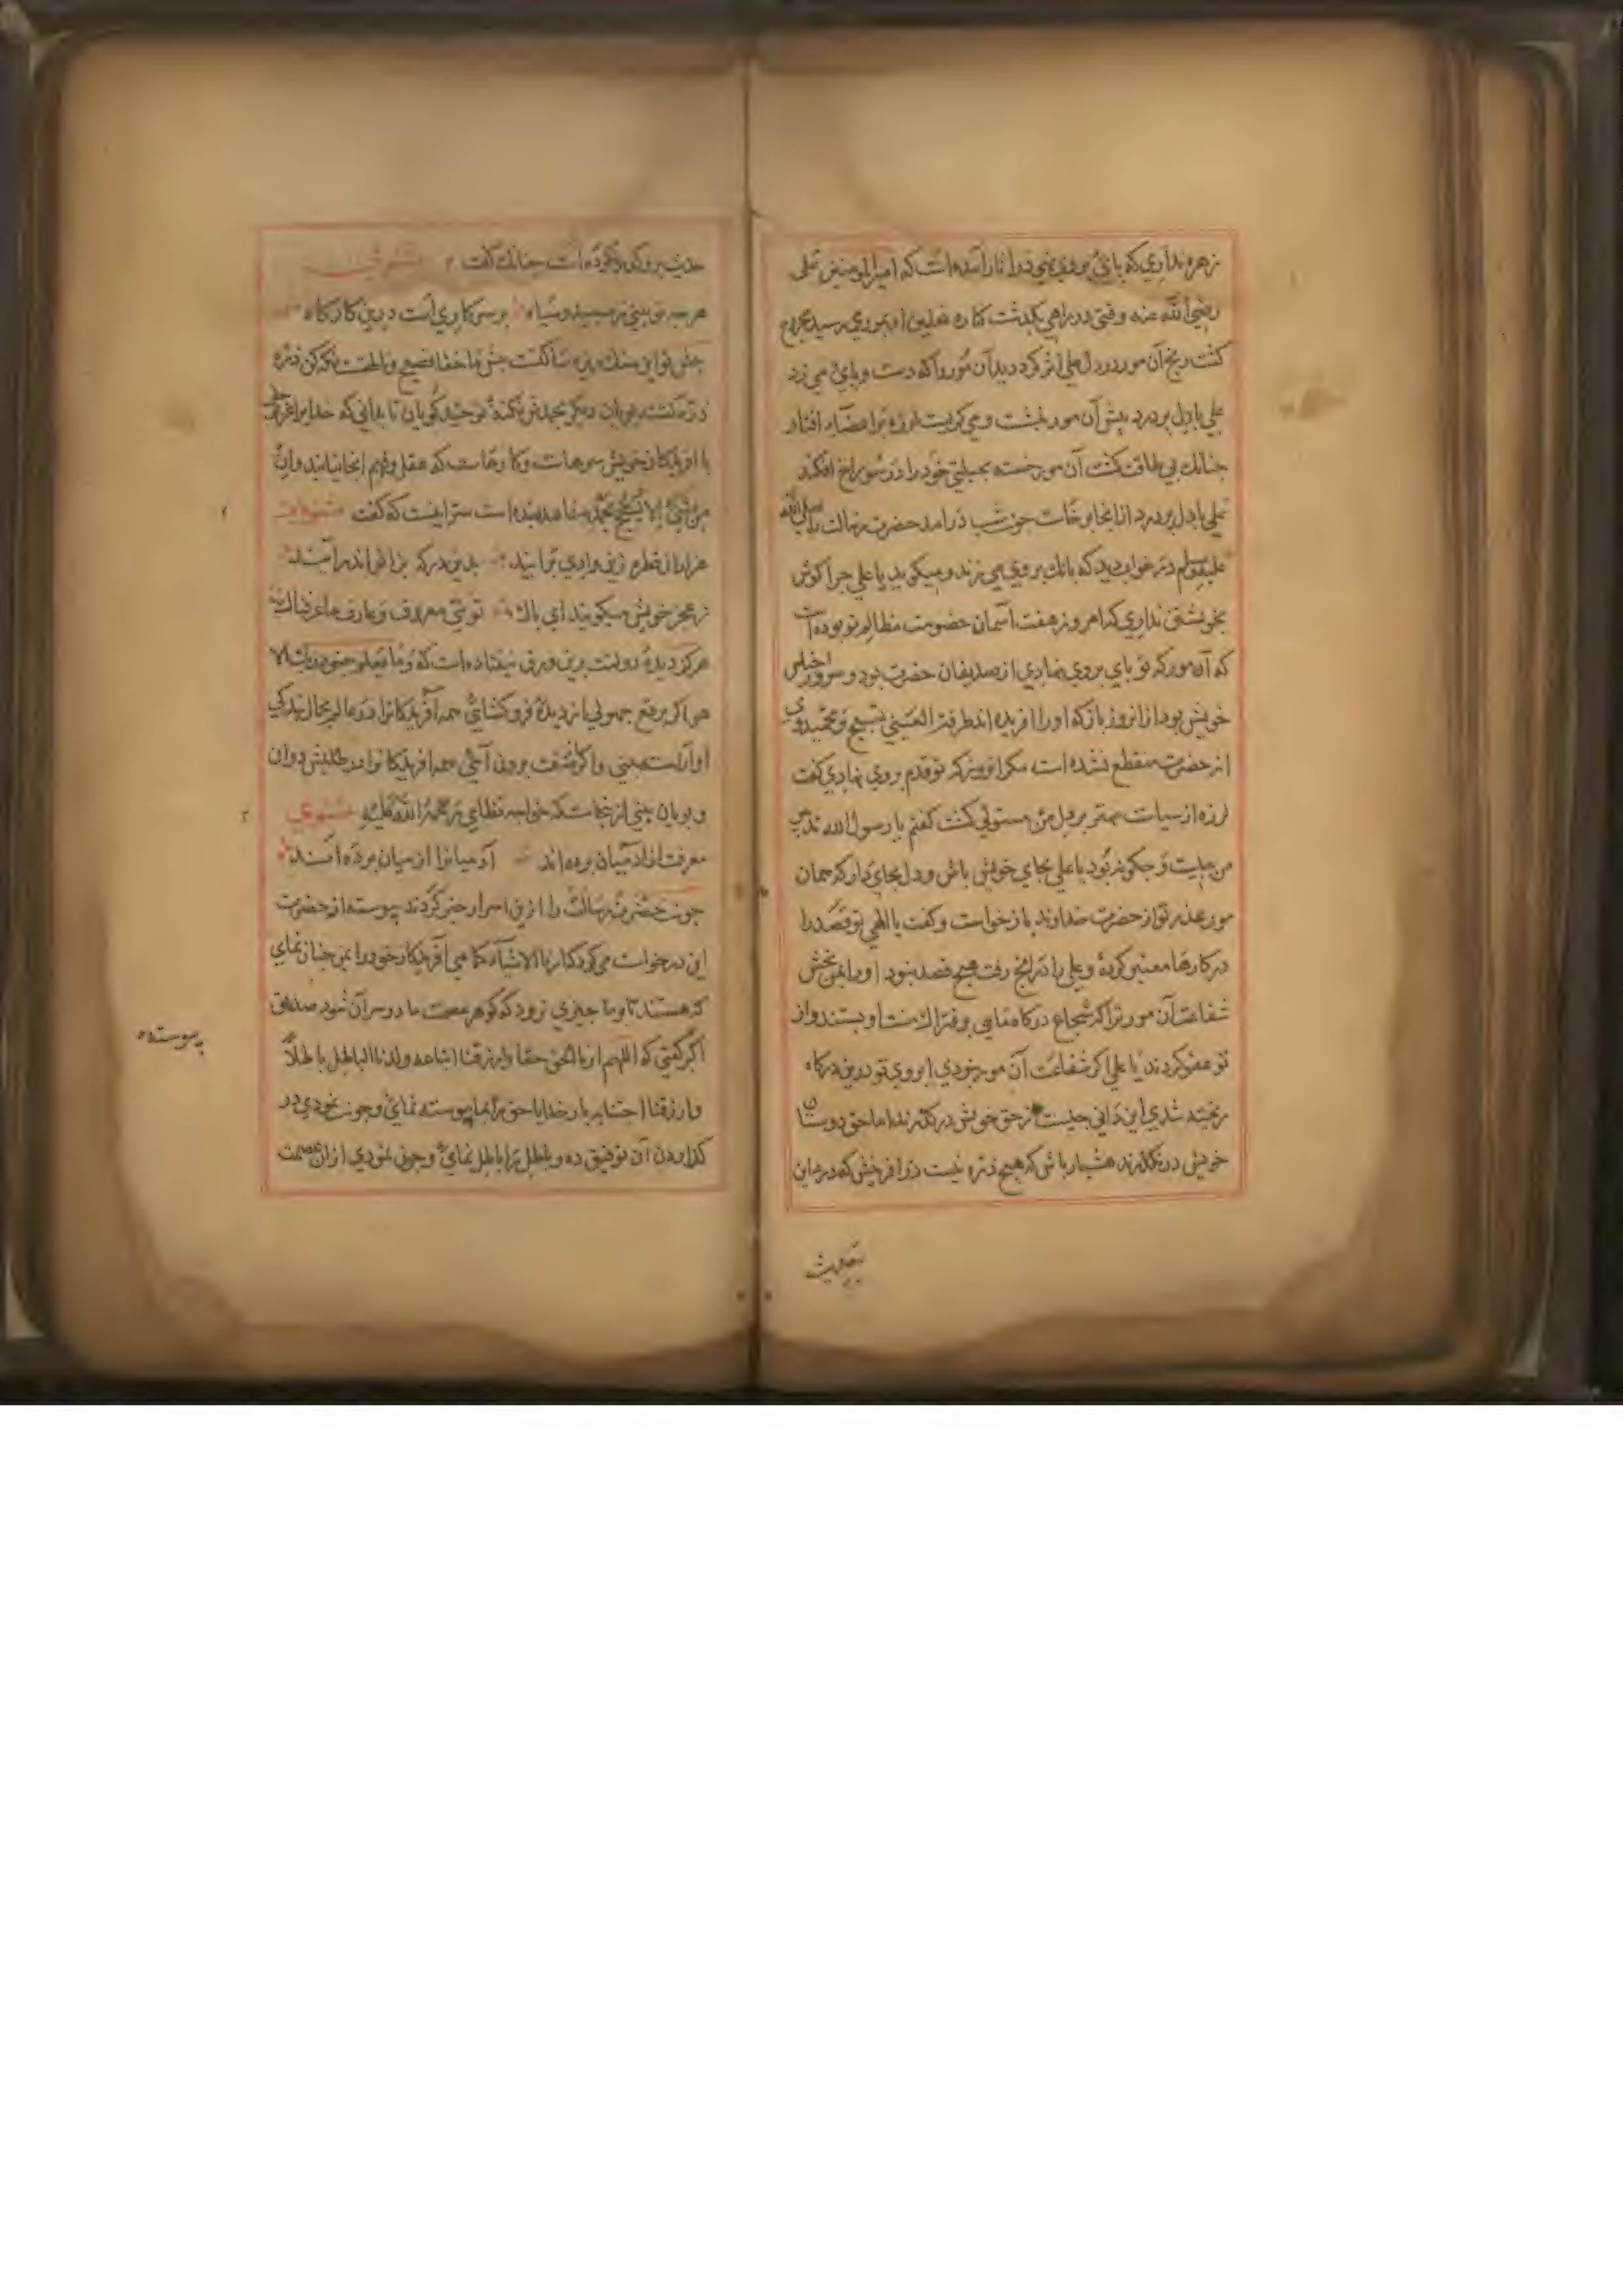 زهره نداری که پای بروی نهی در آثار آمده است که امیرالمومنین علی
رضی الله عنه وقتی در راهی بگذشت کناره نعلین او بموری رسید مجروح
گشت رنج آن مور در دل علی اثر کرد دید آن مور را که دست و پای می زد
علی با دل پر درد پیش آن مور بنشست و می گریست لرزه بر اعضاء افتاد
چنانک بی طاقت گشت آن مور خسته بحیلتی خود را در سوراخ افکند
علی با دل پر درد از انجا برخاست چون شب درآمد حضرت رسالت را صلی الله
علیه وسلم در خواب دید که بانک بروی می زند و میگوید یا علی چرا گوش
بخویشتن نداری که امروز هفت آسمان خصومت مظالم تو بوده است
که آن مور که تو پای بروی نهادی از صدیقان حضرت بود و سرور اجناس
خویش بود از انروز باز که او را آفریده اند طرفة العینی تسبیح و تحمید وی
از حضرت منقطع نشده است مگر انروز که تو قدم بروی نهادی گفت
لرزه از سیاست مهتر بر دل من مستولی گشت گفتم یا رسول الله تدبیر
من چیست و چگونه بود یا علی بجای خویش باش و دل بجای دار که همان
مور عذر تو از حضرت خداوند بازخواست و گفت یا الهی تو قصد را
در کارها معتبر کرده و علی را در انج رفت هیچ قصد نبود او را بمن بخش
شفاعت آن مور ترا که شجاع درگاه مایی و فتراک او بستند و از
تو عفو کردند یا علی اگر شفاعت آن مور نبودی ابروی تو درین درگاه
ریخته شدی این دانی چیست از حق خویش درگذرند اما حق دوستان
خویش درنگذرند هشیار باش که هیچ ذره نیست در آفرینش که درمان این
بحدیث
حدیث برو گذر نکرده است چنانک گفت مثنوی
هرچه تو بینی ز سپید و سیاه بر سر کاریست درین کارگاه
ذره گشته پویان دیگر بحمدش نکنده توحید گویان تا بدانی که خدا را عزوجل
با آفریدگان خویش سرهاست و کارهاست که عقل و فهم انجا نیابند وان
من شیء الا یسبح بحمده شاهد بنده است سر اینست که گفت مثنوی
هزاران قطره زین وادی برآیند بدین درگه بزانو اندر آیند
ز عجز خویش میگویند ای پاک تویی معروف و عارف ما عرفناک
هرگز دیده دولت برین ورق نیفتاده است که وما یعلم جنود ربک الا
هو اگر برقع جهولی از دیده فروگشایی همه آفریدگانرا در عالم بحال بندگی
او آراسته بینی و اگر برون آیی همه آفریدگانرا در طلبش دوان
و پویان بینی از ینجاست که خواجه نظامی رحمة الله علیه مثنوی
معرفت از آدمیان برده اند آدمیانرا از میان برده اند
چون حضرت رسالت را ازین اسرار خبر کردند پیوسته از حضرت
این درخواست می کرد که ارنا الاشیاء کما هی آفریدگار خود را بمن چنان نمای
که هستند تا وما چیزی نرود که گوهر عصمت ما در سر آن شود صدیق
اکبر گفتی که اللهم ارنا الحق حقا وارزقنا اتباعه ولرنا الباطل باطلا
وارزقنا اجتنابه بار خدایا حق را بما پیوسته نمای و چون نمودی در
گذاردن آن توفیق ده و باطل را باطل نمای و چون نمودی از ان عصمت
پیوسته